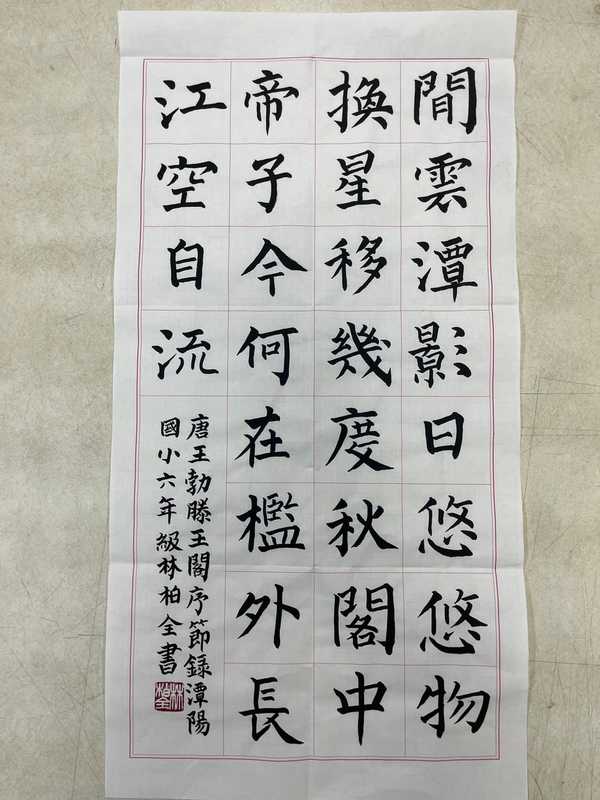 閒雲潭影日悠悠物
換星移幾度秋閣中
帝子今何在檻外長
江空自流
唐王勃滕王閣序節錄潭陽
國小六年級林柏全書
林柏全